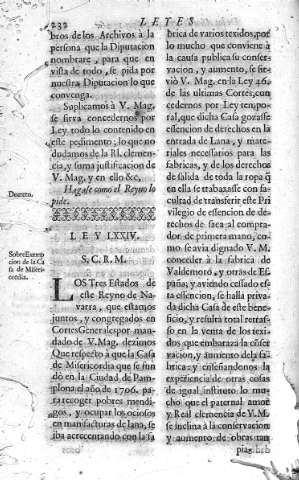 232 LEYES
bros de los Archivos à la
persona que la Diputacion
nombrare, para que en
vista de todo, se pida por
nuestra Diputacion lo que
convenga.
Suplicamos à V. Mag.
se sirva concedernos por
Ley todo lo contenido en
este pedimento, lo que no
dudamos de la Rl. clemen-
cia, y suma justificacion de
V. Mag. y en ello &c.
Decreto.
Hagase como el Reyno lo
pide.
LEY LXXIV.
S. C. R. M.
Sobre Essen-
cion de la Ca
sa de Miseri-
cordia.
LOS Tres Estados de
este Reyno de Na-
varra, que estamos
juntos, y congregados en
Cortes Generales por man-
dado de V. Mag. dezimos
Que respecto à que la Casa
de Misericordia que se fun
dò en la Ciudad de Pam-
plona el año de 1706. para
recoger pobres mendi-
gos, y ocupar los ociosos
en manufacturas de lana, se
iba acrecentando con la fa
brica de varios texidos, por
lo mucho que conviene à
la causa publica su conser-
vacion, y aumento, se sir-
viò V. Mag. en la Ley 46.
de las ultimas Cortes, con
cedernos por Ley tempo-
ral, que dicha Casa gozasse
essencion de derechos en
la entrada de Lana, y mate-
riales necessarios para las
fabricas, y de los derechos
de salida de toda la ropa q̃
en ella se trabajasse con fa-
cultad de transferir este Pri
vilegio de essencion de de-
rechos de saca al compra-
dor de primera mano, co-
mo se avia dignado V. M.
conceder à la fabrica de
Valdemorò, y otras de Es-
paña, y aviendo cessado es
ta essencion, se halla priva
da dicha Casa de este bene
ficio, y resulta total retras-
so en la venta de los texi-
dos que embaraza la conser
vacion, y aumento de la fa-
brica: y enseñandonos la
experiencia de otras casas
de igual instituto lo mu-
cho que el paternal amor
y Real clemencia de V. M.
se inclina à la conservacion
y aumento de obras tan
pias,